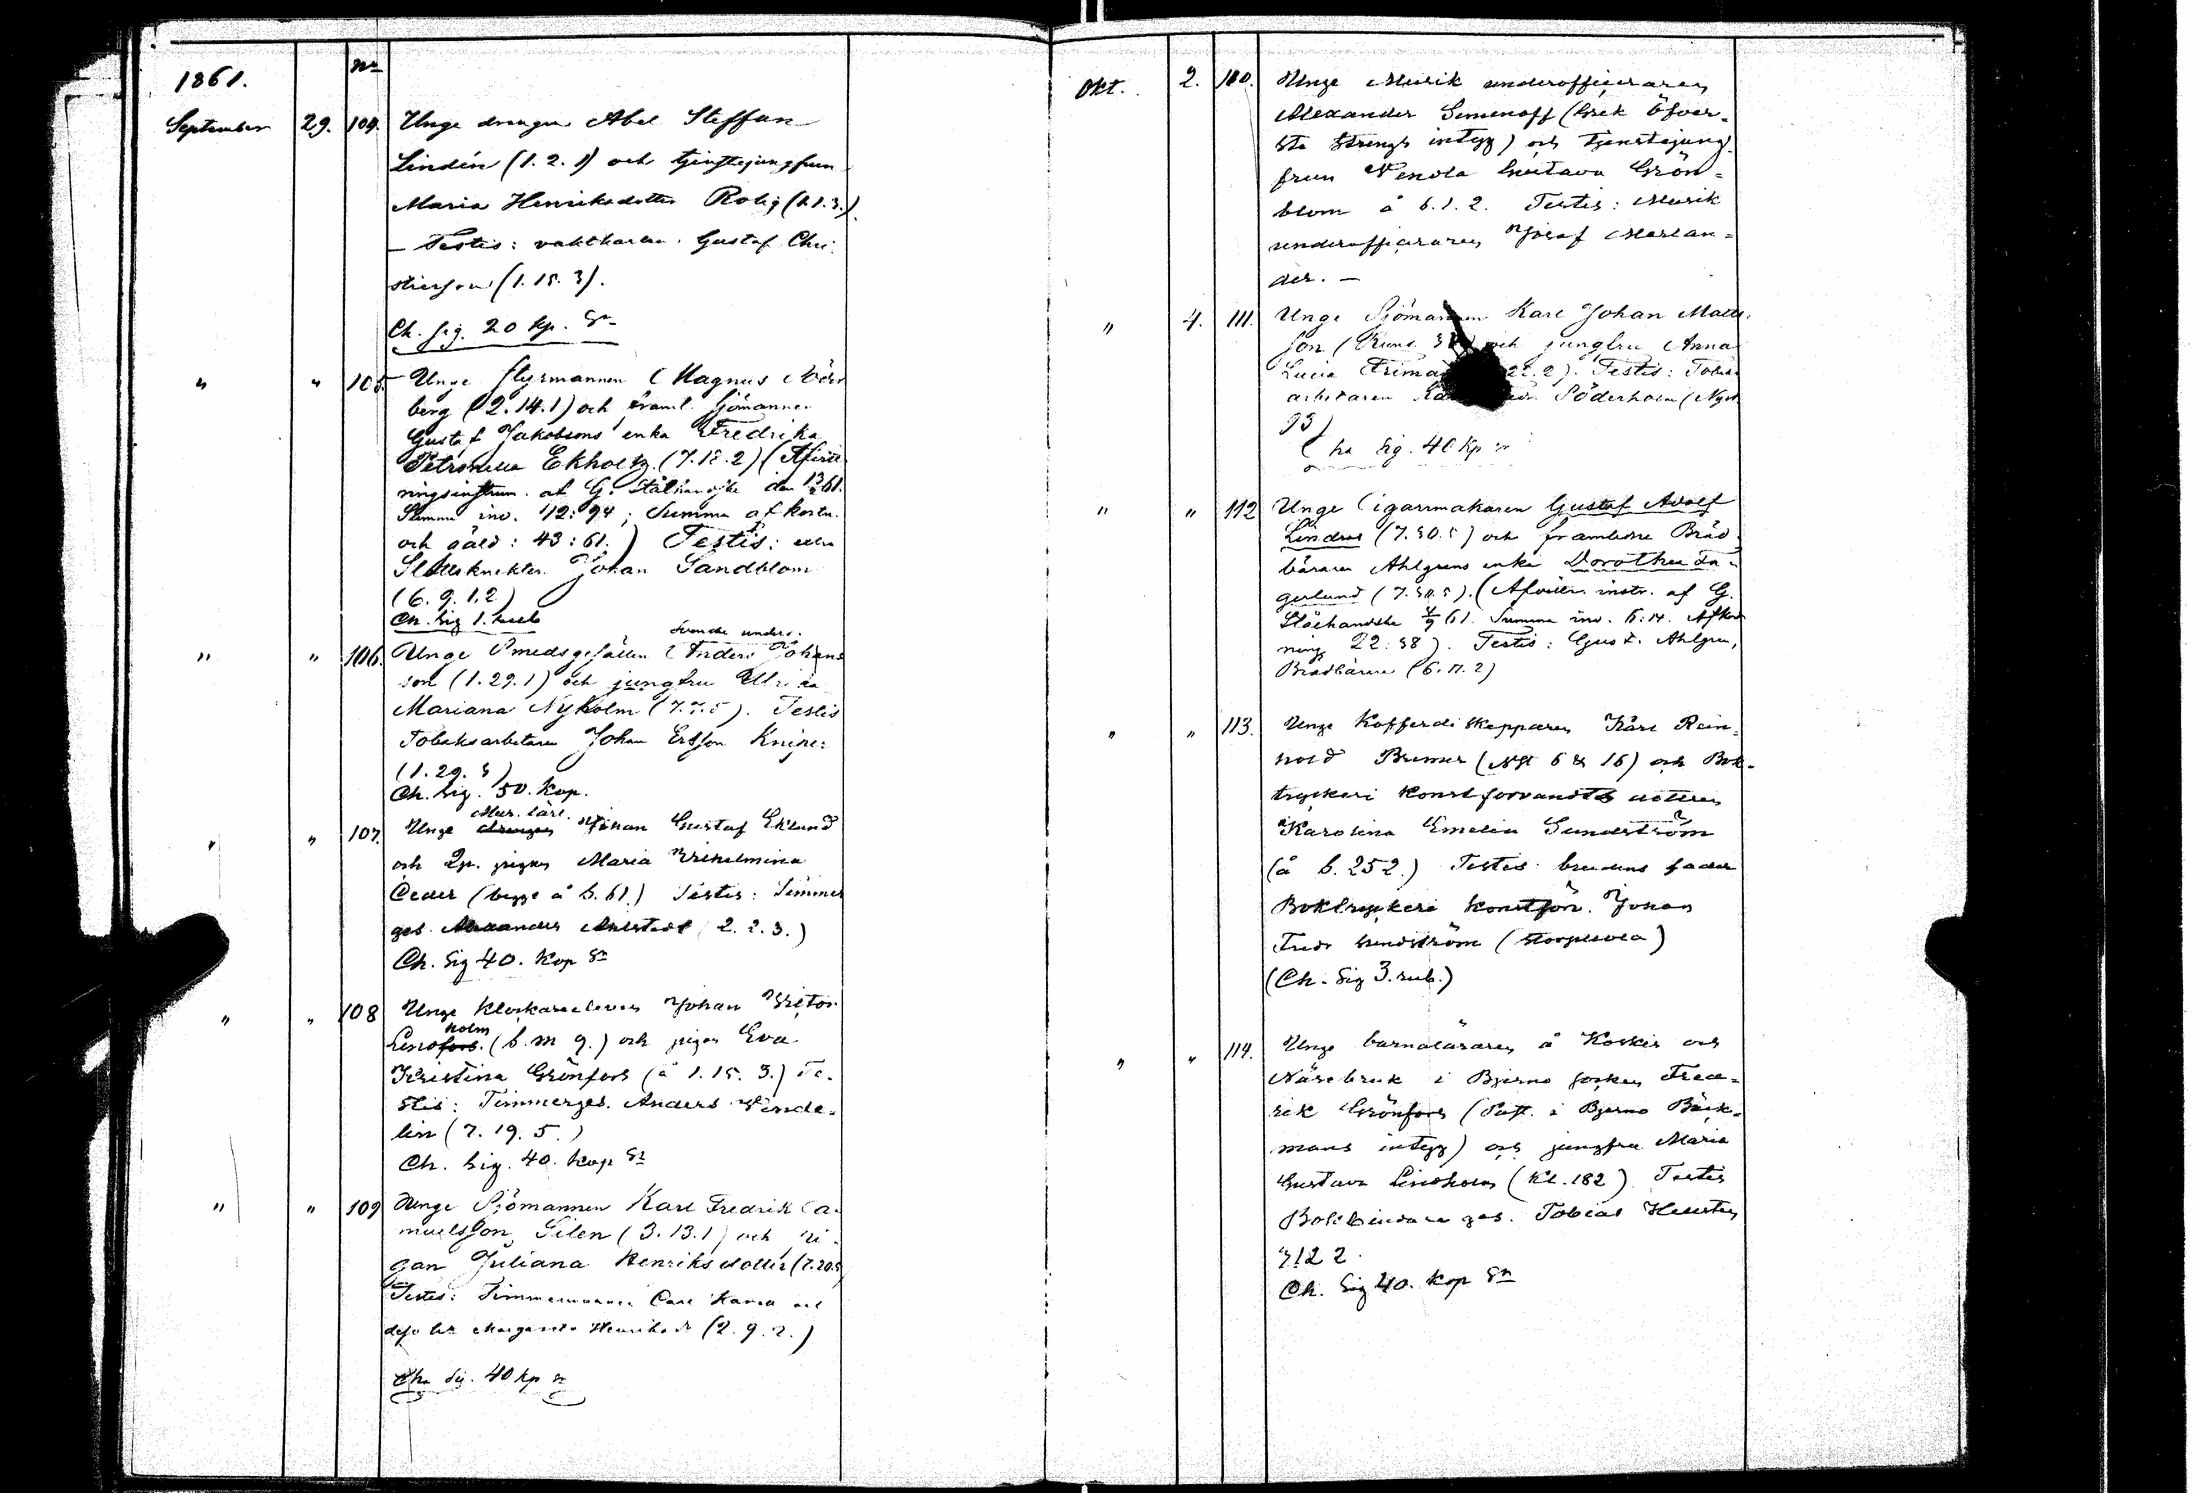 1861.
No
September 29. 104. Unge drengen Abel Steffan
Lindén (1. 2. 1) och tjenstejungfrun
Maria Henriksdotter Rolig (1.1.3.)
— Testis: vaktkarlen Gustaf Chri-
stierson (1. 15. 3).
Ch. sig. 20 kp. Sr
" " 105. Unge styrmannen Magnus Nord
berg (2. 14. 1) och framl. Sjömannen
Gustaf Jakobsons enka Fredrika
Petronella Ekholtz (7. 18. 2) (Afvitt
ringsinstrum. af G. Stålhandske den
Summa inv. 112: 94; Summa afkortn.
och gäld: 43: 61.) Testis:
Slottsknekten Johan Sandblom
(6. 9. 1. 2)
Ch. Sig 1. rub
Svenske unders.
" " 106. Unge Smedsgesällen Anders Johans
son (1. 29. 1) och jungfru Ulrika
Mariana Nyholm (7. 7. 5). Testis
Tobaksarbetaren Johan Ersson Knipe:
(1. 29. 3)
Ch. Sig. 50. Kop.
Mur. lärl.
" " 107. Unge drengen Johan Gustaf Eklund
och pigan Maria Wilhelmina
Ceder (begge å b. 61.) Testis: Timmer
ges. Alexander Ahlstedt (2. 2. 3.)
Ch. Sig 40. Kop Sr
" " 108 Unge klockareeleven Johan Victor
holm
Lindfors. (b. m 9.) och pigan Eva
Kristina Grönfors (å 1. 15. 3.) Te-
stis: Timmerges. Anders Wende-
lin (7. 19. 5.)
Ch. Sig. 40. Kop Sr
" " 109 Unge Sjömannen Karl Fredrik Sa-
muelsson Silen (3. 13. 1) och pi-
gan Juliana Henriksdotter (7.20.5)
Testes: Timmermannen Carl och
Margareta Henriksdr (2. 9. 2.)
Cha Sig. 40 kp Sr
Okt. 2. 110. Unge Musik underofficeraren
Alexander Simenoff (Grek Öfver-
ste Strengs intyg) och tjenstejung-
frun Wendla Gustava Grön-
blom å 6. 1. 2. Testis: Musik
underofficeraren Josef Merlan-
der. —
" 4. 111. Unge Sjömannen Karl Johan Matts
son (Kuns. och jungfru Anna
Lucia 22. 2). Testis: Tobaks
arbetaren Söderholm (Nyst
93)
Cha Sig. 40 kp Sr
" " 112 Unge Cigarrmakaren Gustaf Adolf
Lindros (7. 30. 5) och framlidne Bräd
bäraren Ahlgrens enka Dorothea Fa-
gerlund (7. 30. 5). (Afvittr. instr. af G.
Stålhandske 61. Summa inv. 6: 14. Afkort
ning 22: 38). Testis: Gust. Ahlgren,
Brädbärare (6. 17. 2)
" " 113. Unge Kofferdi Skepparen Karl Rein-
hold Bremer (Nyst 6 & 16) och Bok-
tryckeri Konstförvandts dottren
Karolina Emelia Sundström
(å b. 252.) Testis: brudens fader
Boktryckeri Konstför. Johan
Fredr Sundström (Storpsosea)
(Ch. Sig 3. rub.)
" " 114. Unge barnaläraren å Koskis och
Näse bruk i Bjerno socken Fred-
rik Grönfors (Past. i Bjerno Bäck-
mans intyg) och jungfru Maria
Gustava Lindholm (Kl. 182). Testis
Bokbindare ges. Tobias
7 12 2.
Ch. Sig 40. kop Sr